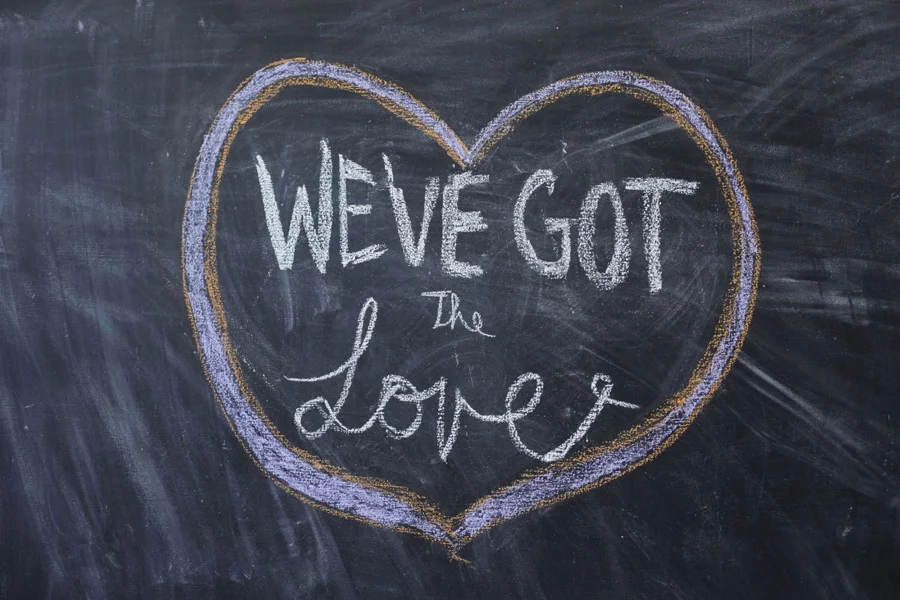 WE'VE GOT
The
Love